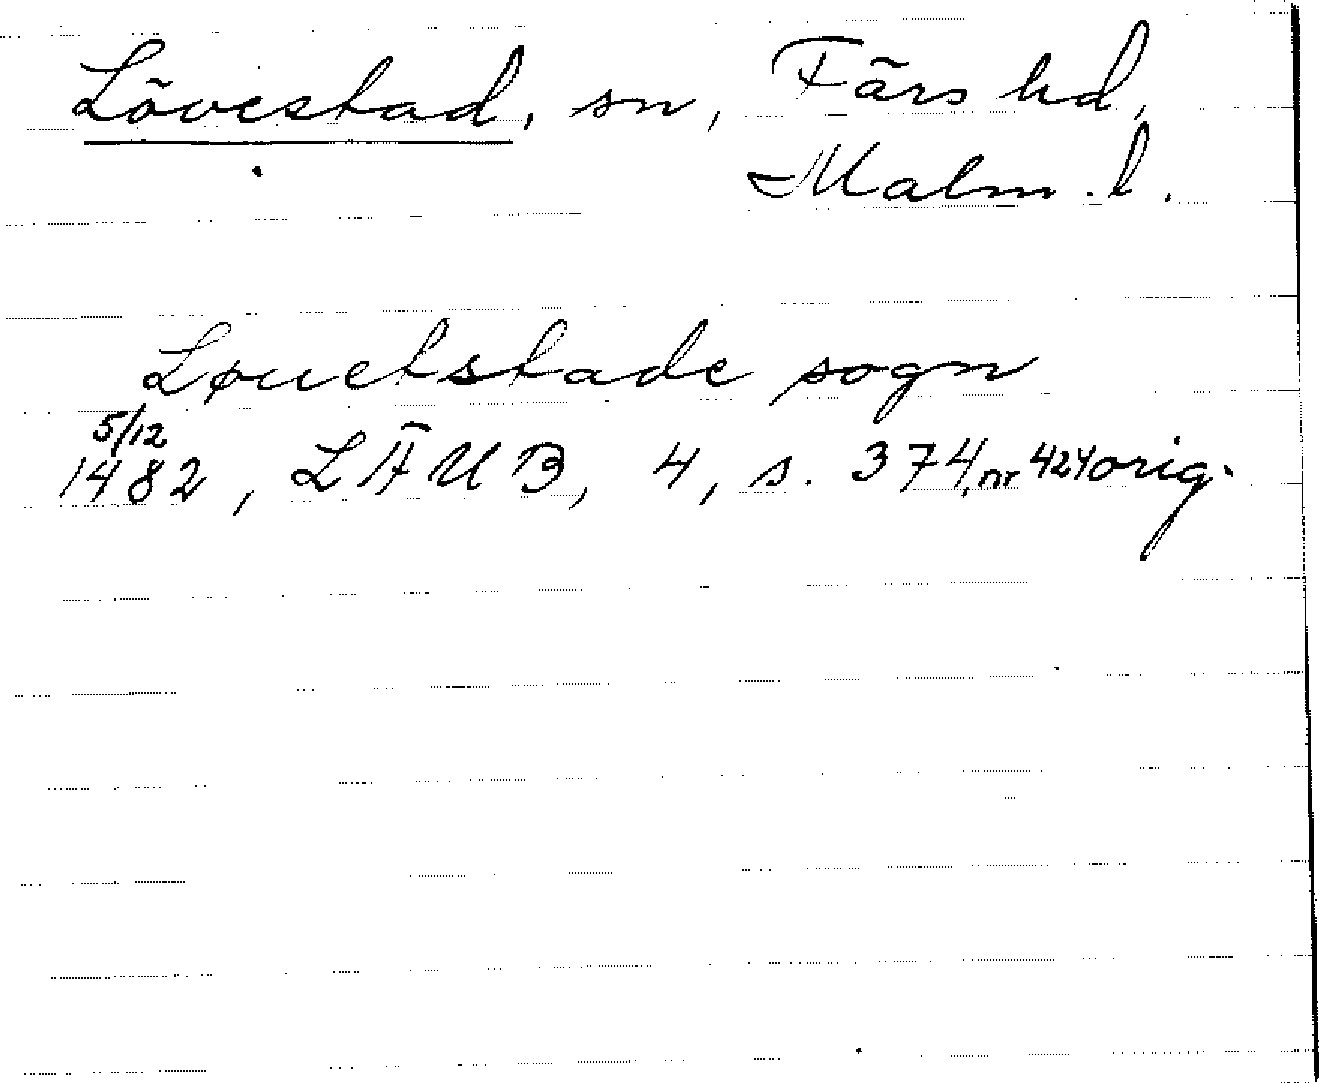 Lövestad, sn, Färs hd,
Malm. l.
Løuetstade sogn
5/12
1482, LÄUB, 4, s. 374, nr 424 orig.